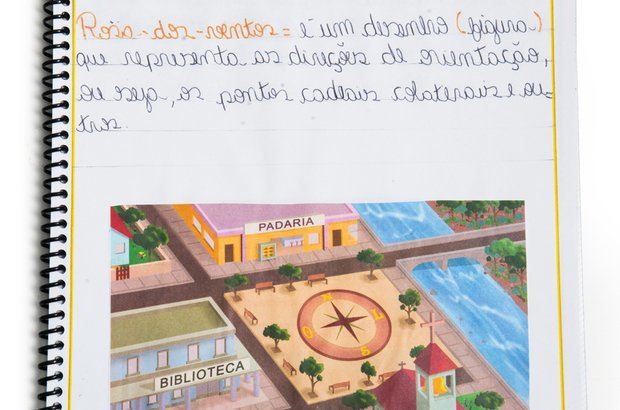 Rosa-dos-ventos = é um desenho (figura)
que representa as direções de orientação,
ou seja, os pontos cadeais colaterais e ou=
tros.
PADARIA
N
O L
S
BIBLIOTECA